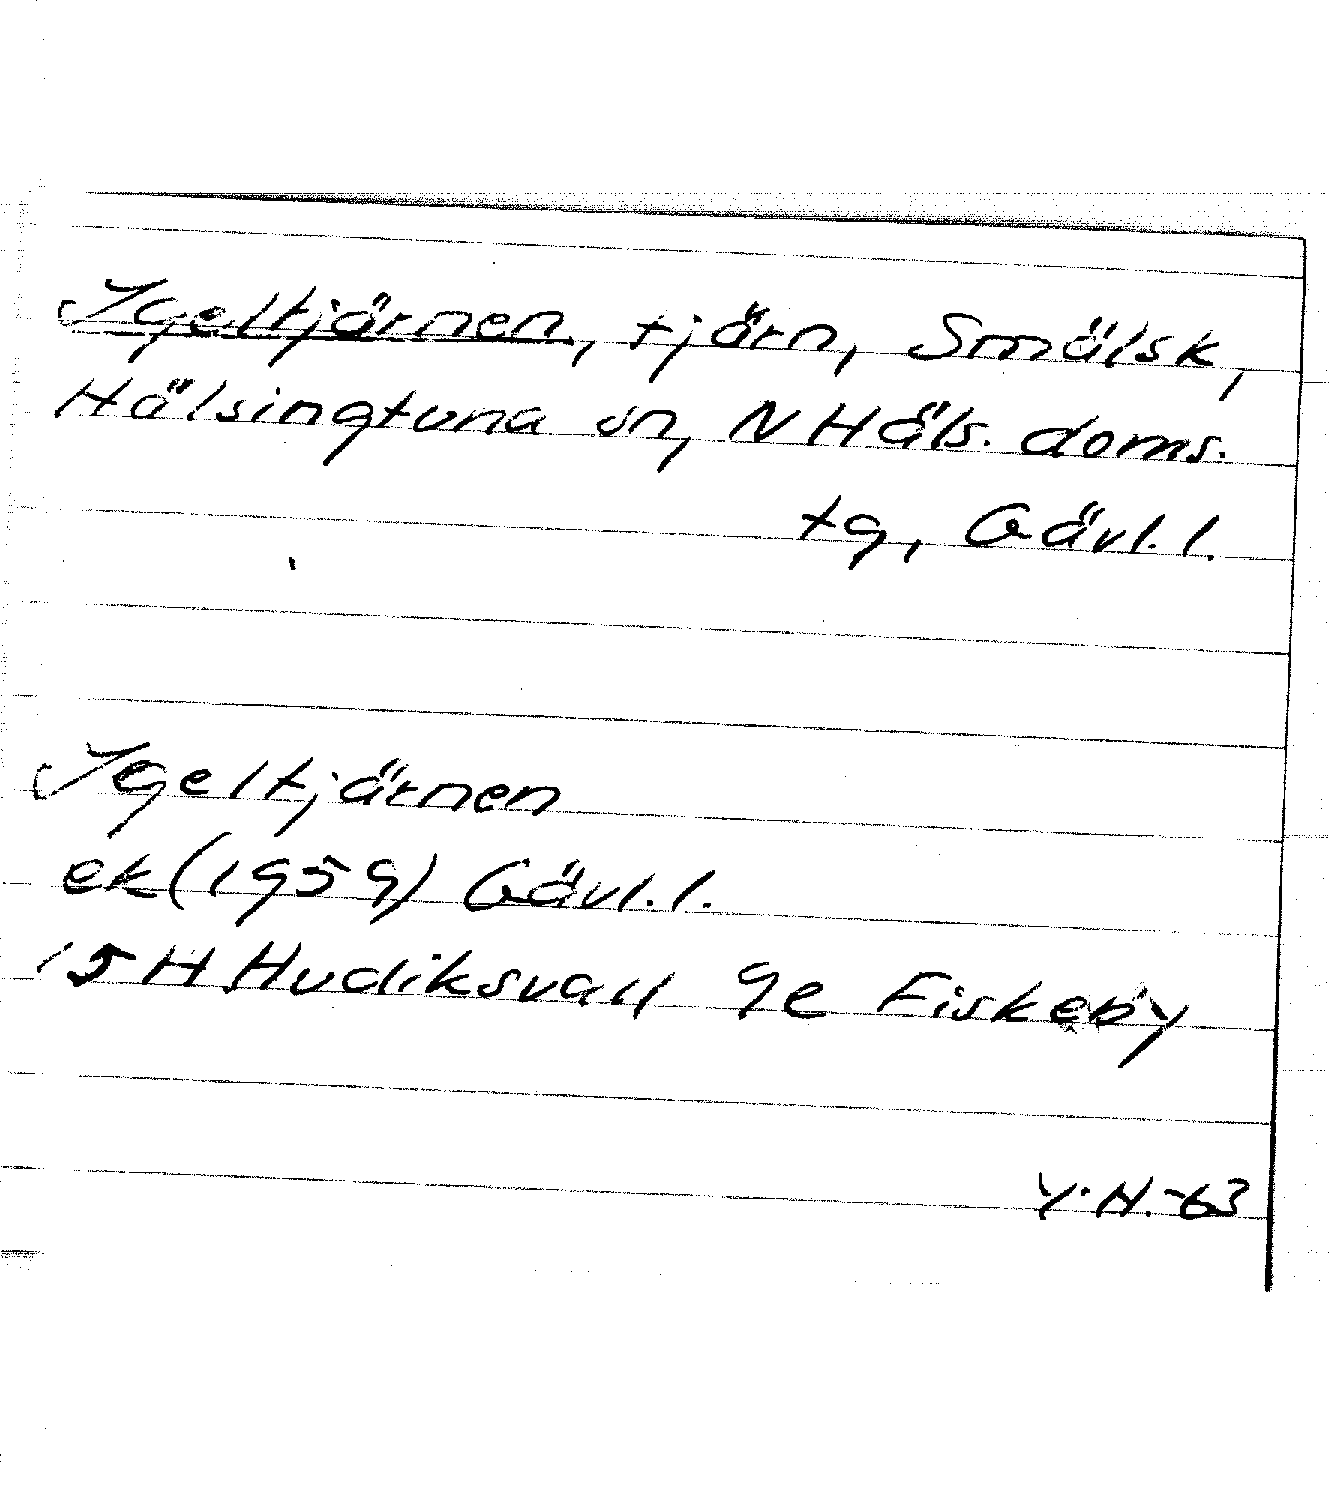 Igeltjärnen, tjärn, Smälsk,
Hälsingtuna sn, N Häls. doms.
tg, Gävl. l.
Igeltjärnen
ek (1959) Gävl. l.
15H Hudiksvall 9e Fiskeby
Y.H. -63